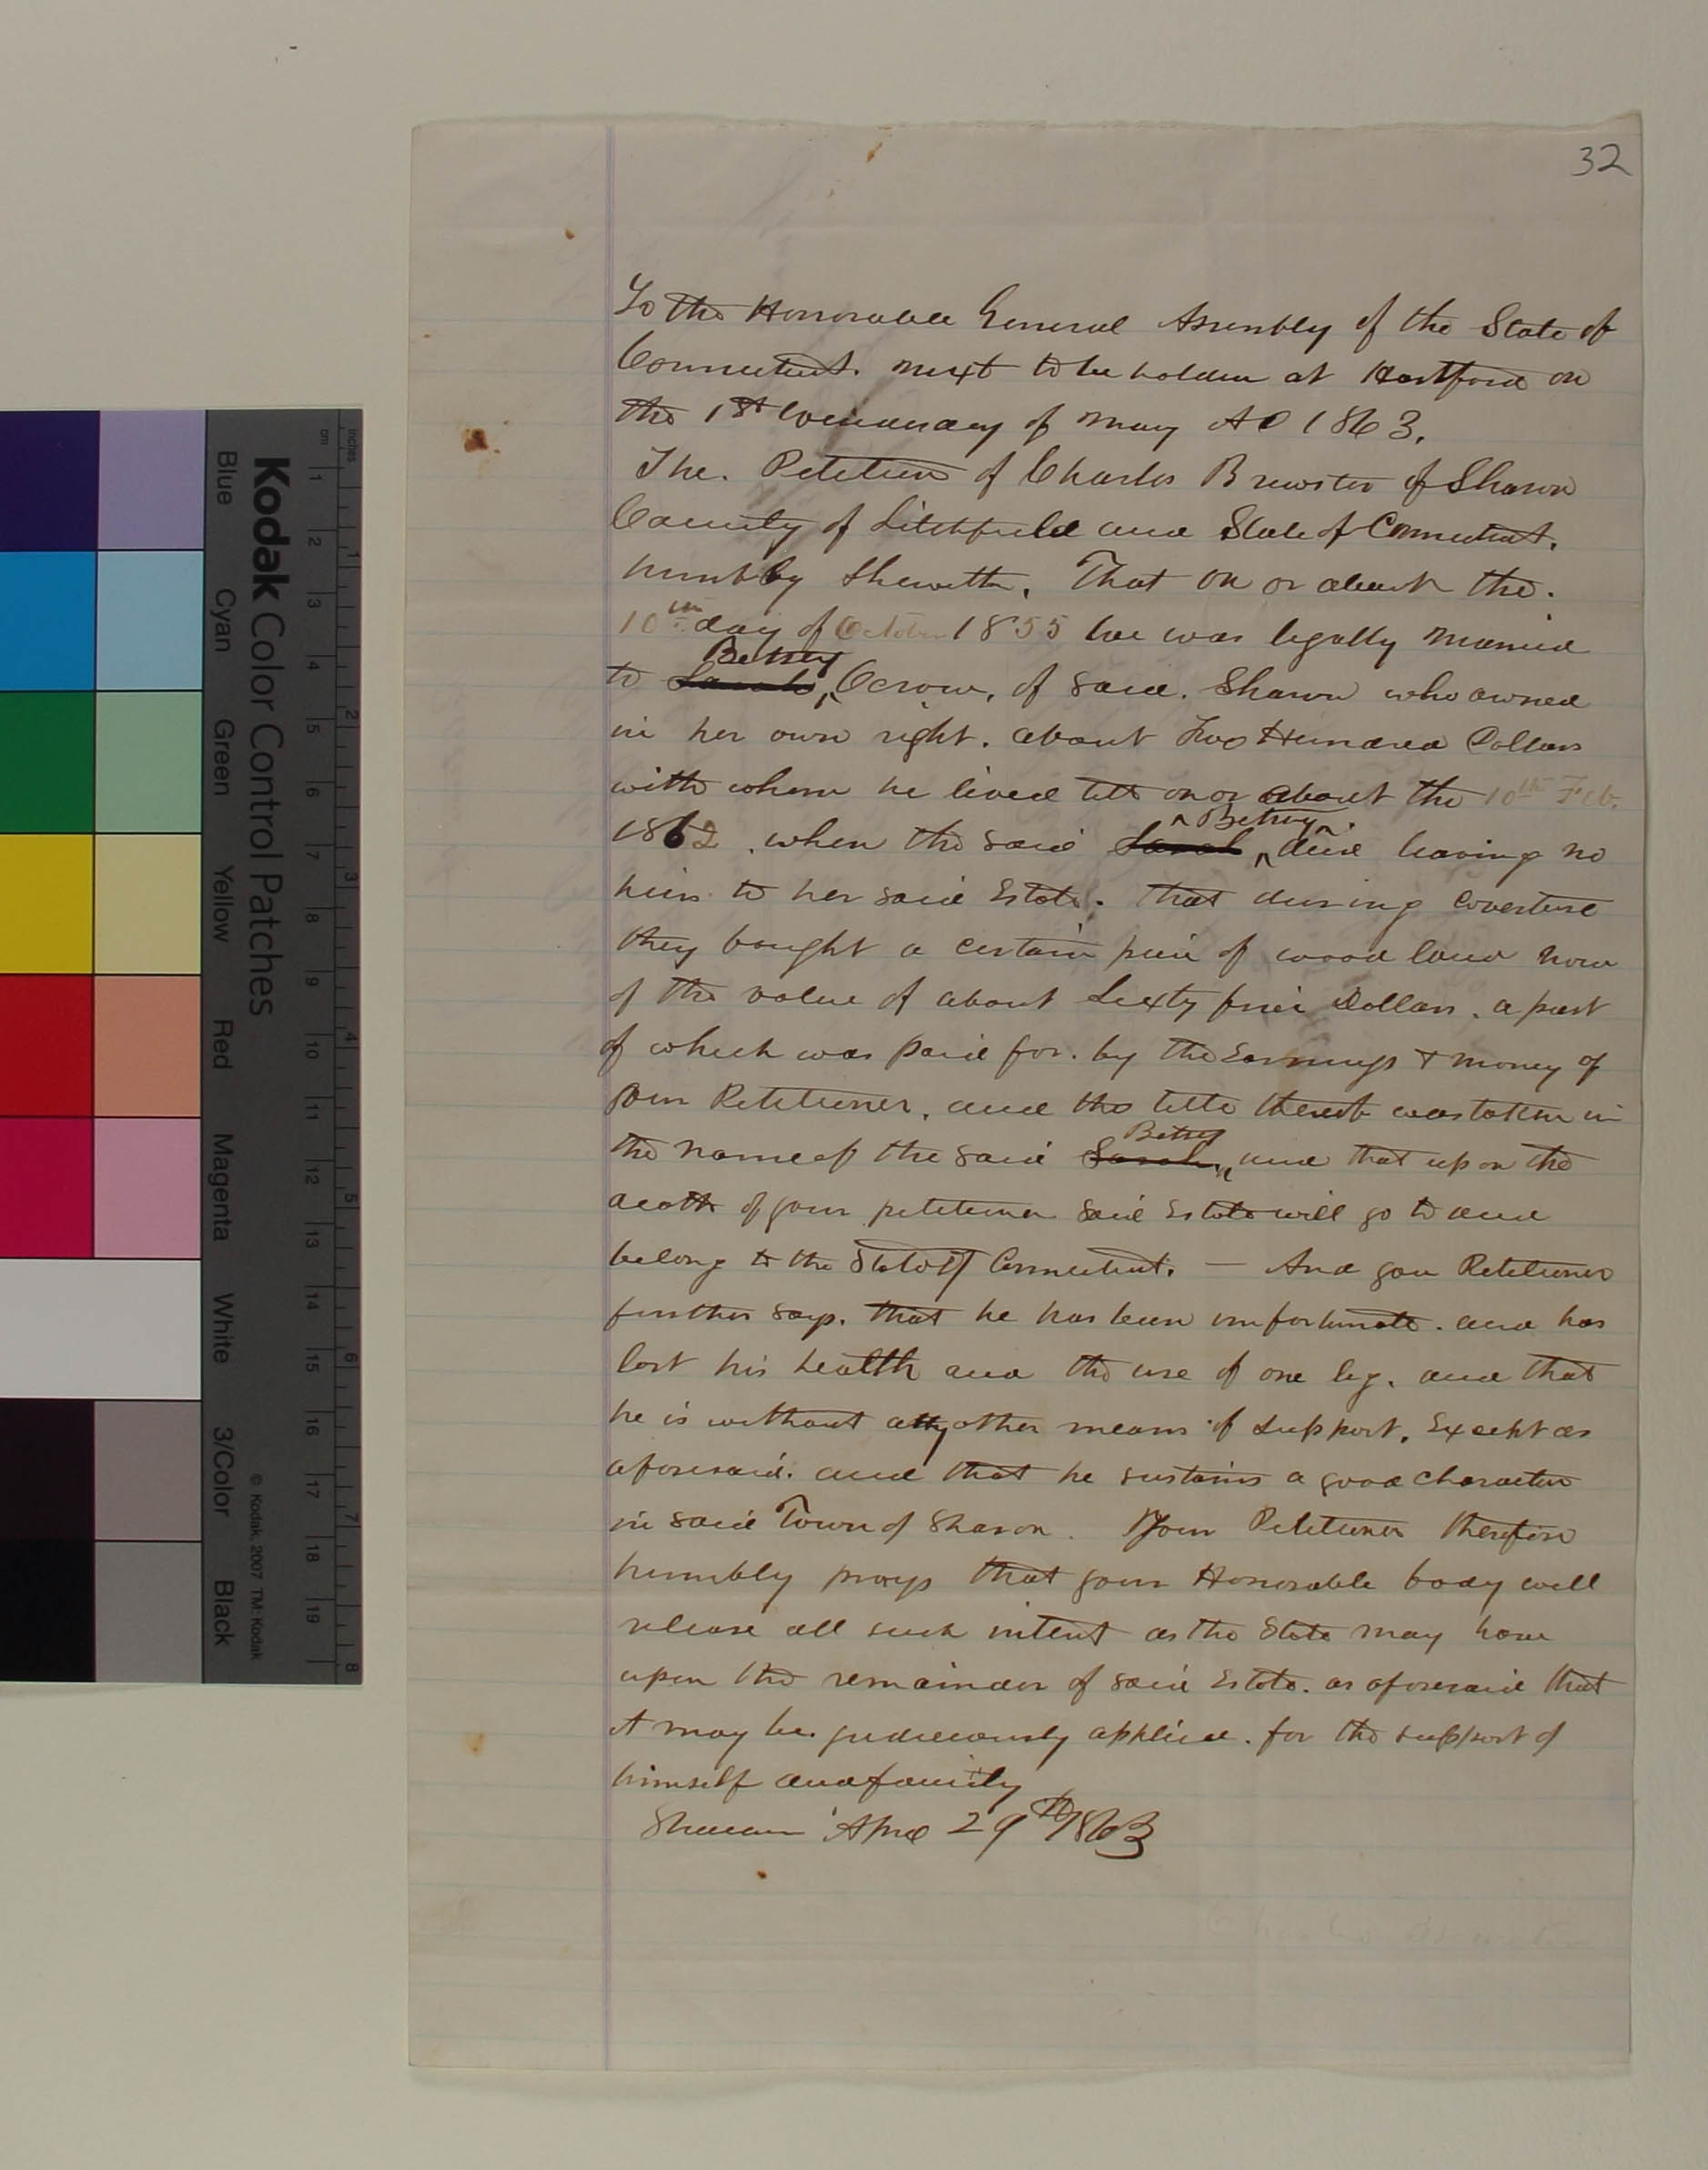 32
To the Honorable General Assembly of the State of
Connecticut. next to be holden at Hartford on
the 1st Wednesday of May AD 1863.
The. Petition of Charles Brewster of Sharon
County of Litchfield and State of Connecticut.
humbly Sheweth. That on or about the.
10th day of October 1855 he was legally married
Betsey
to Sarah, of said. Sharon who owned
in her own right. about Two Hundred Dollars
with whom he lived till on or about the 10th Feb.
Betsey
1862. when the said Sarah died leaving no
heirs to her said Estate. That during coverture
they bought a certain piece of wood land now
of the value of about Sixty five Dollars. a part
of which was paid for. by the Earnings & money of
your Petitioner. and the title thereof was taken in
Betsey
the name of the said Sarah, and that upon the
death of your petitioner said Estate will go to and
belong to the State of Connecticut. — And you Petitioner
further says. that he has been unfortunate. and has
lost his health and the use of one leg. and that
he is without any other means of support. Except as
aforesaid. and that he sustains a good character
in said Town of Sharon. Your Petitioner therefore
humbly prays that your Honorable body will
release all such interest as the State may have
upon the remainder of said Estate. as aforesaid that
it may be. judiciously applied. for the support of
himself and family
Sharon April 29th 1863
Charles Brewster
Kodak Color Control Patches
Blue Cyan Green Yellow Red Magenta White 3/Color Black
© Kodak, 2007 TM: Kodak
inches 1 2 3 4 5 6 7 8
cm 1 2 3 4 5 6 7 8 9 10 11 12 13 14 15 16 17 18 19